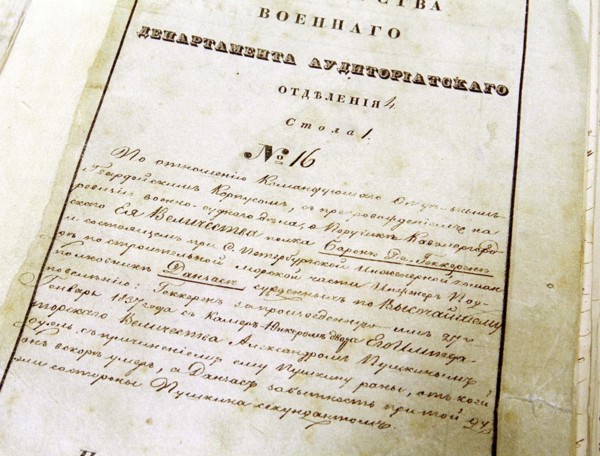 СТВА
ВОЕННАГО
ДЕПАРТАМЕНТА АУДИТОРІАТСКАГО
ОТДѢЛЕНІЯ 4,
Стола 1.
№ 16
По отношенію Командующаго Отдѣльнымъ
Гвардейскимъ Корпусомъ, съ препровожденіемъ на
ревизію военно-суднаго дѣла, о Поручикѣ Кавалергард
скаго Ея Величества полка Баронѣ Де-Геккеренѣ
и состоящемъ при С. Петербургской Инженерной коман
дѣ по строительной морской части Инженеръ Под
полковникѣ Данзасѣ сужденныхъ по Высочайшему
повелѣнію: Геккеренъ за произведенную имъ 27го
Генваря 1837 года съ Камеръ-Юнкеромъ двора Его Импера
торскаго Величества Александромъ Пушкинымъ
дуэль съ причиненіемъ ему Пушкину раны, отъ коей
онъ вскорѣ умеръ, а Данзасъ за бытность при той ду
эли со стороны Пушкина секундантомъ.